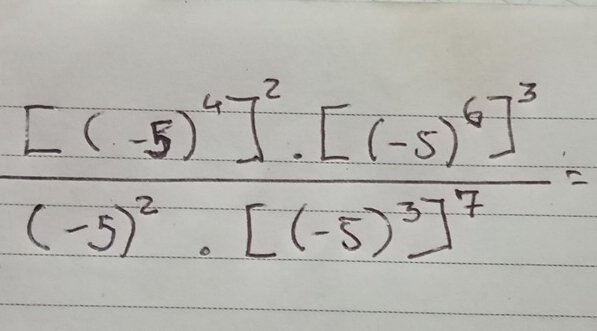 [(-5)⁴]² . [(-5)⁶]³
(-5)² . [(-5)³]⁷ =